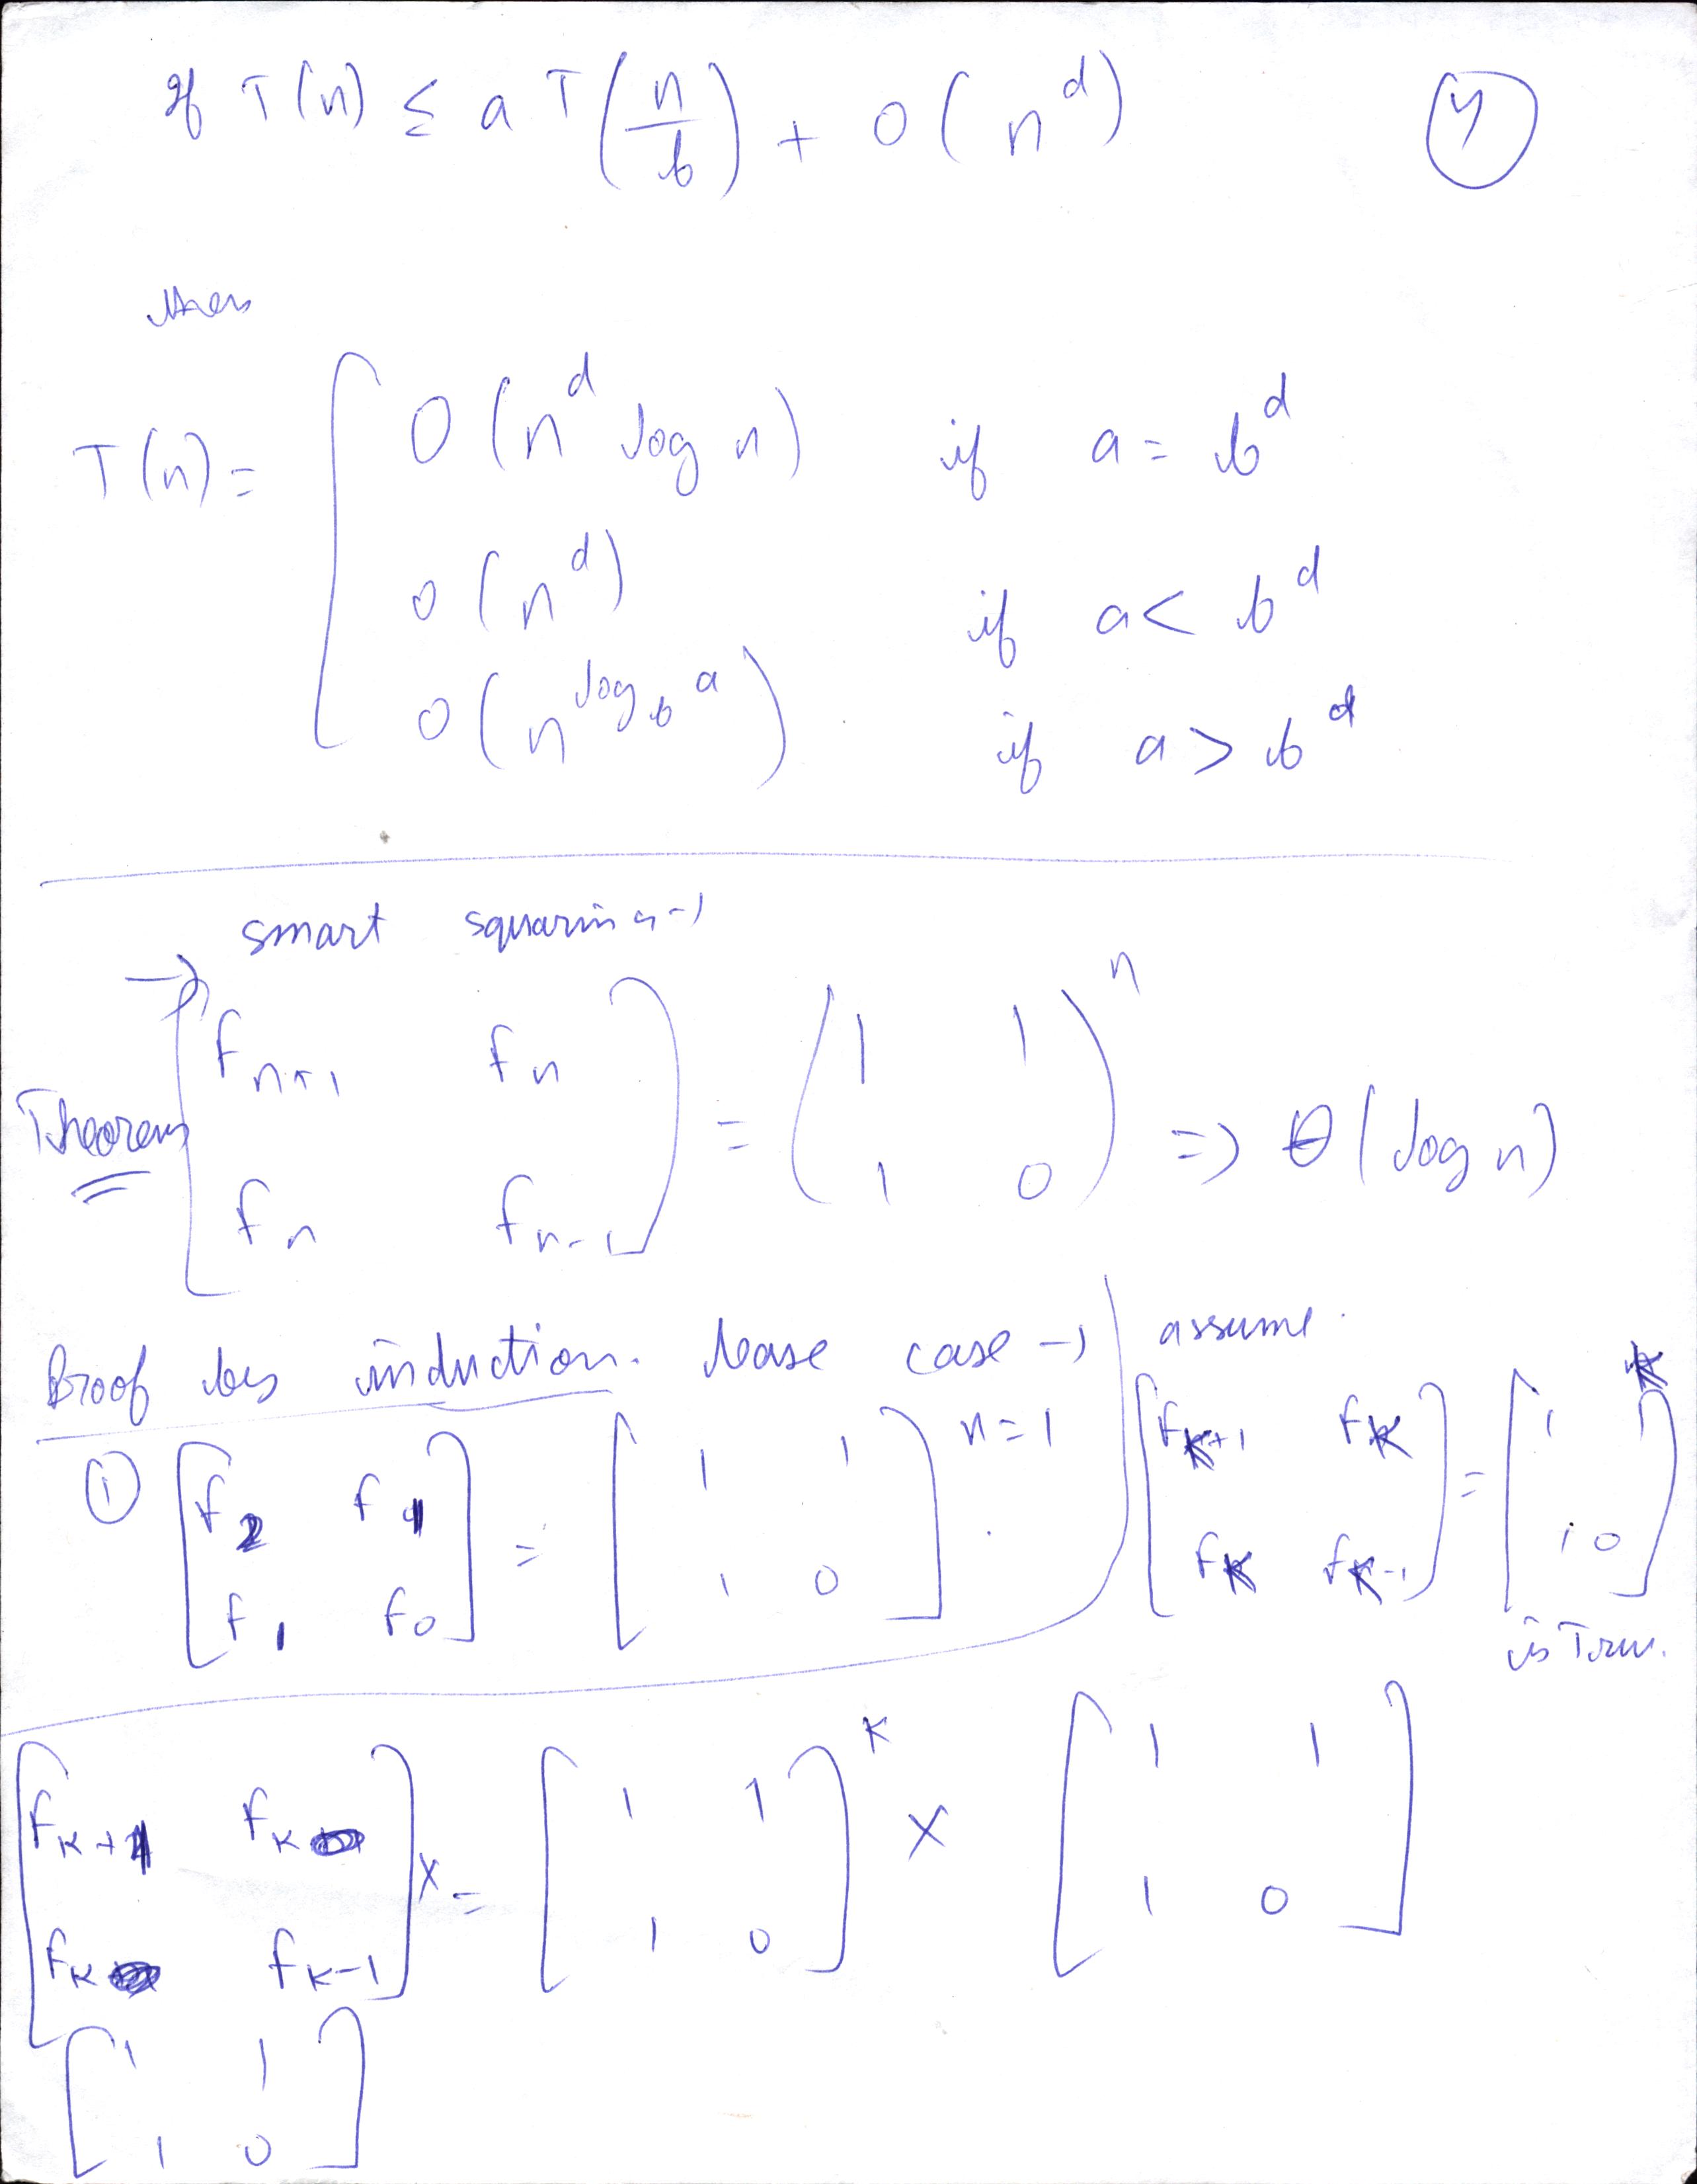 If T(n) ≤ a T(n/b) + O(n^d)
4
then
T(n) = { O(n^d log n) if a = b^d
O(n^d) if a < b^d
O(n^(log_b a)) if a > b^d
smart squaring →
Theorem → [f_(n+1) f_n ; f_n f_(n-1)] = (1 1 ; 1 0)^n ⇒ θ(log n)
Proof by induction. base case →
① [f_2 f_1 ; f_1 f_0] = [1 1 ; 1 0] n = 1 .
assume.
[f_(k+1) f_k ; f_k f_(k-1)] = [1 1 ; 1 0]^k
is True.
[f_(k+1) f_k ; f_k f_(k-1)] x = [1 1 ; 1 0]^k x [1 1 ; 1 0]
[1 1 ; 1 0]